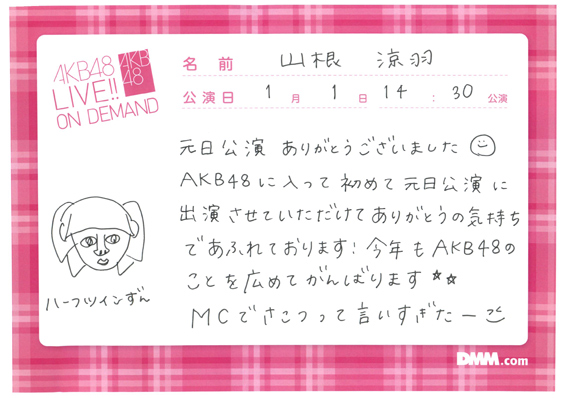 AKB48
LIVE!!
ON DEMAND
AKB
48
名前 山根 涼羽
公演日 1月1日 14:30 公演
元日公演 ありがとうございました
AKB48に入って初めて元日公演に
出演させていただけてありがとうの気持ち
であふれております!今年もAKB48の
ことを広めてがんばります☆☆
MCでさこつって言いすぎたー
ハーフツインずん
DMM.com